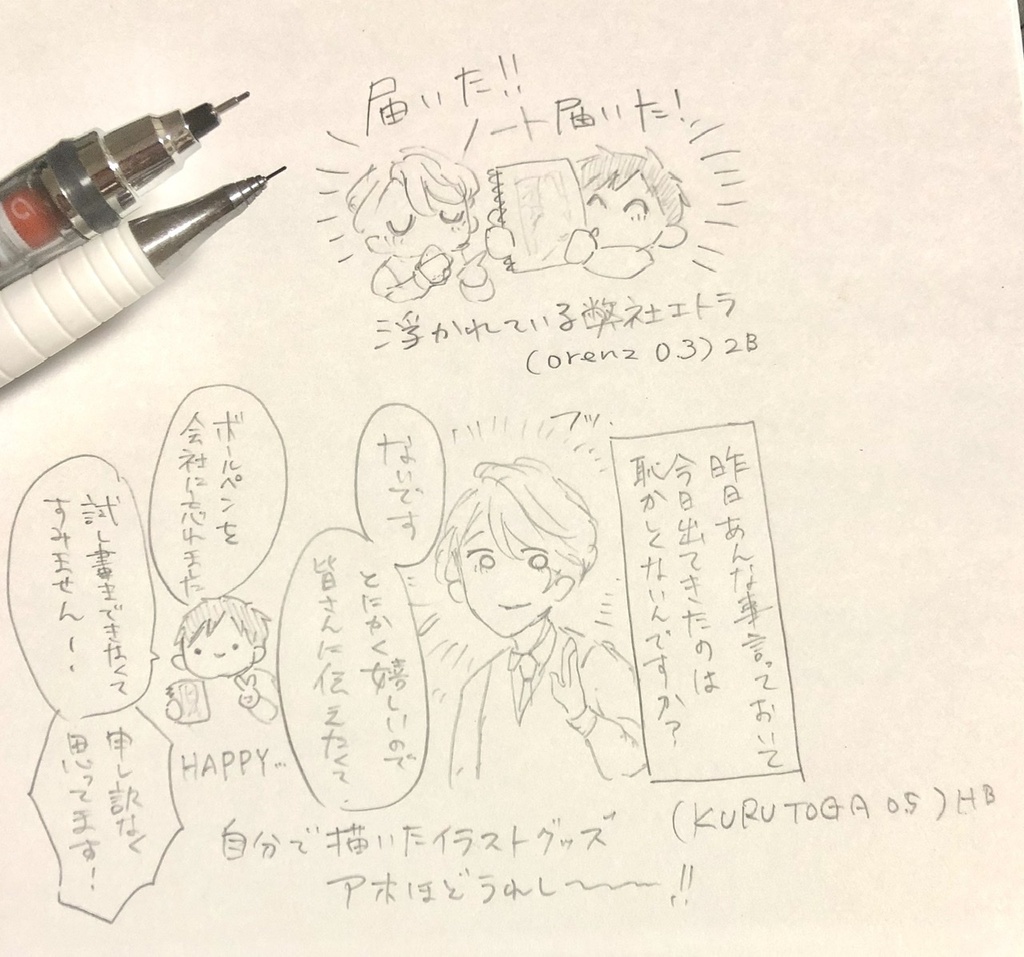 届いた!!
ノート届いた!
浮かれている弊社エトラ
(orenz 0.3) 2B
フッ.
昨日あんな事言っておいて
今日出てきたのは
恥かしくないんですか?
ないです
とにかく嬉しいので
皆さんに伝えたくて
ボールペンを
会社に忘れました
試し書きできなくて
すみません〜
申し訳なく
思ってます!
HAPPY...
(KURUTOGA 0.5) HB
自分で描いたイラストグッズ
アホほどうれし〜〜〜!!